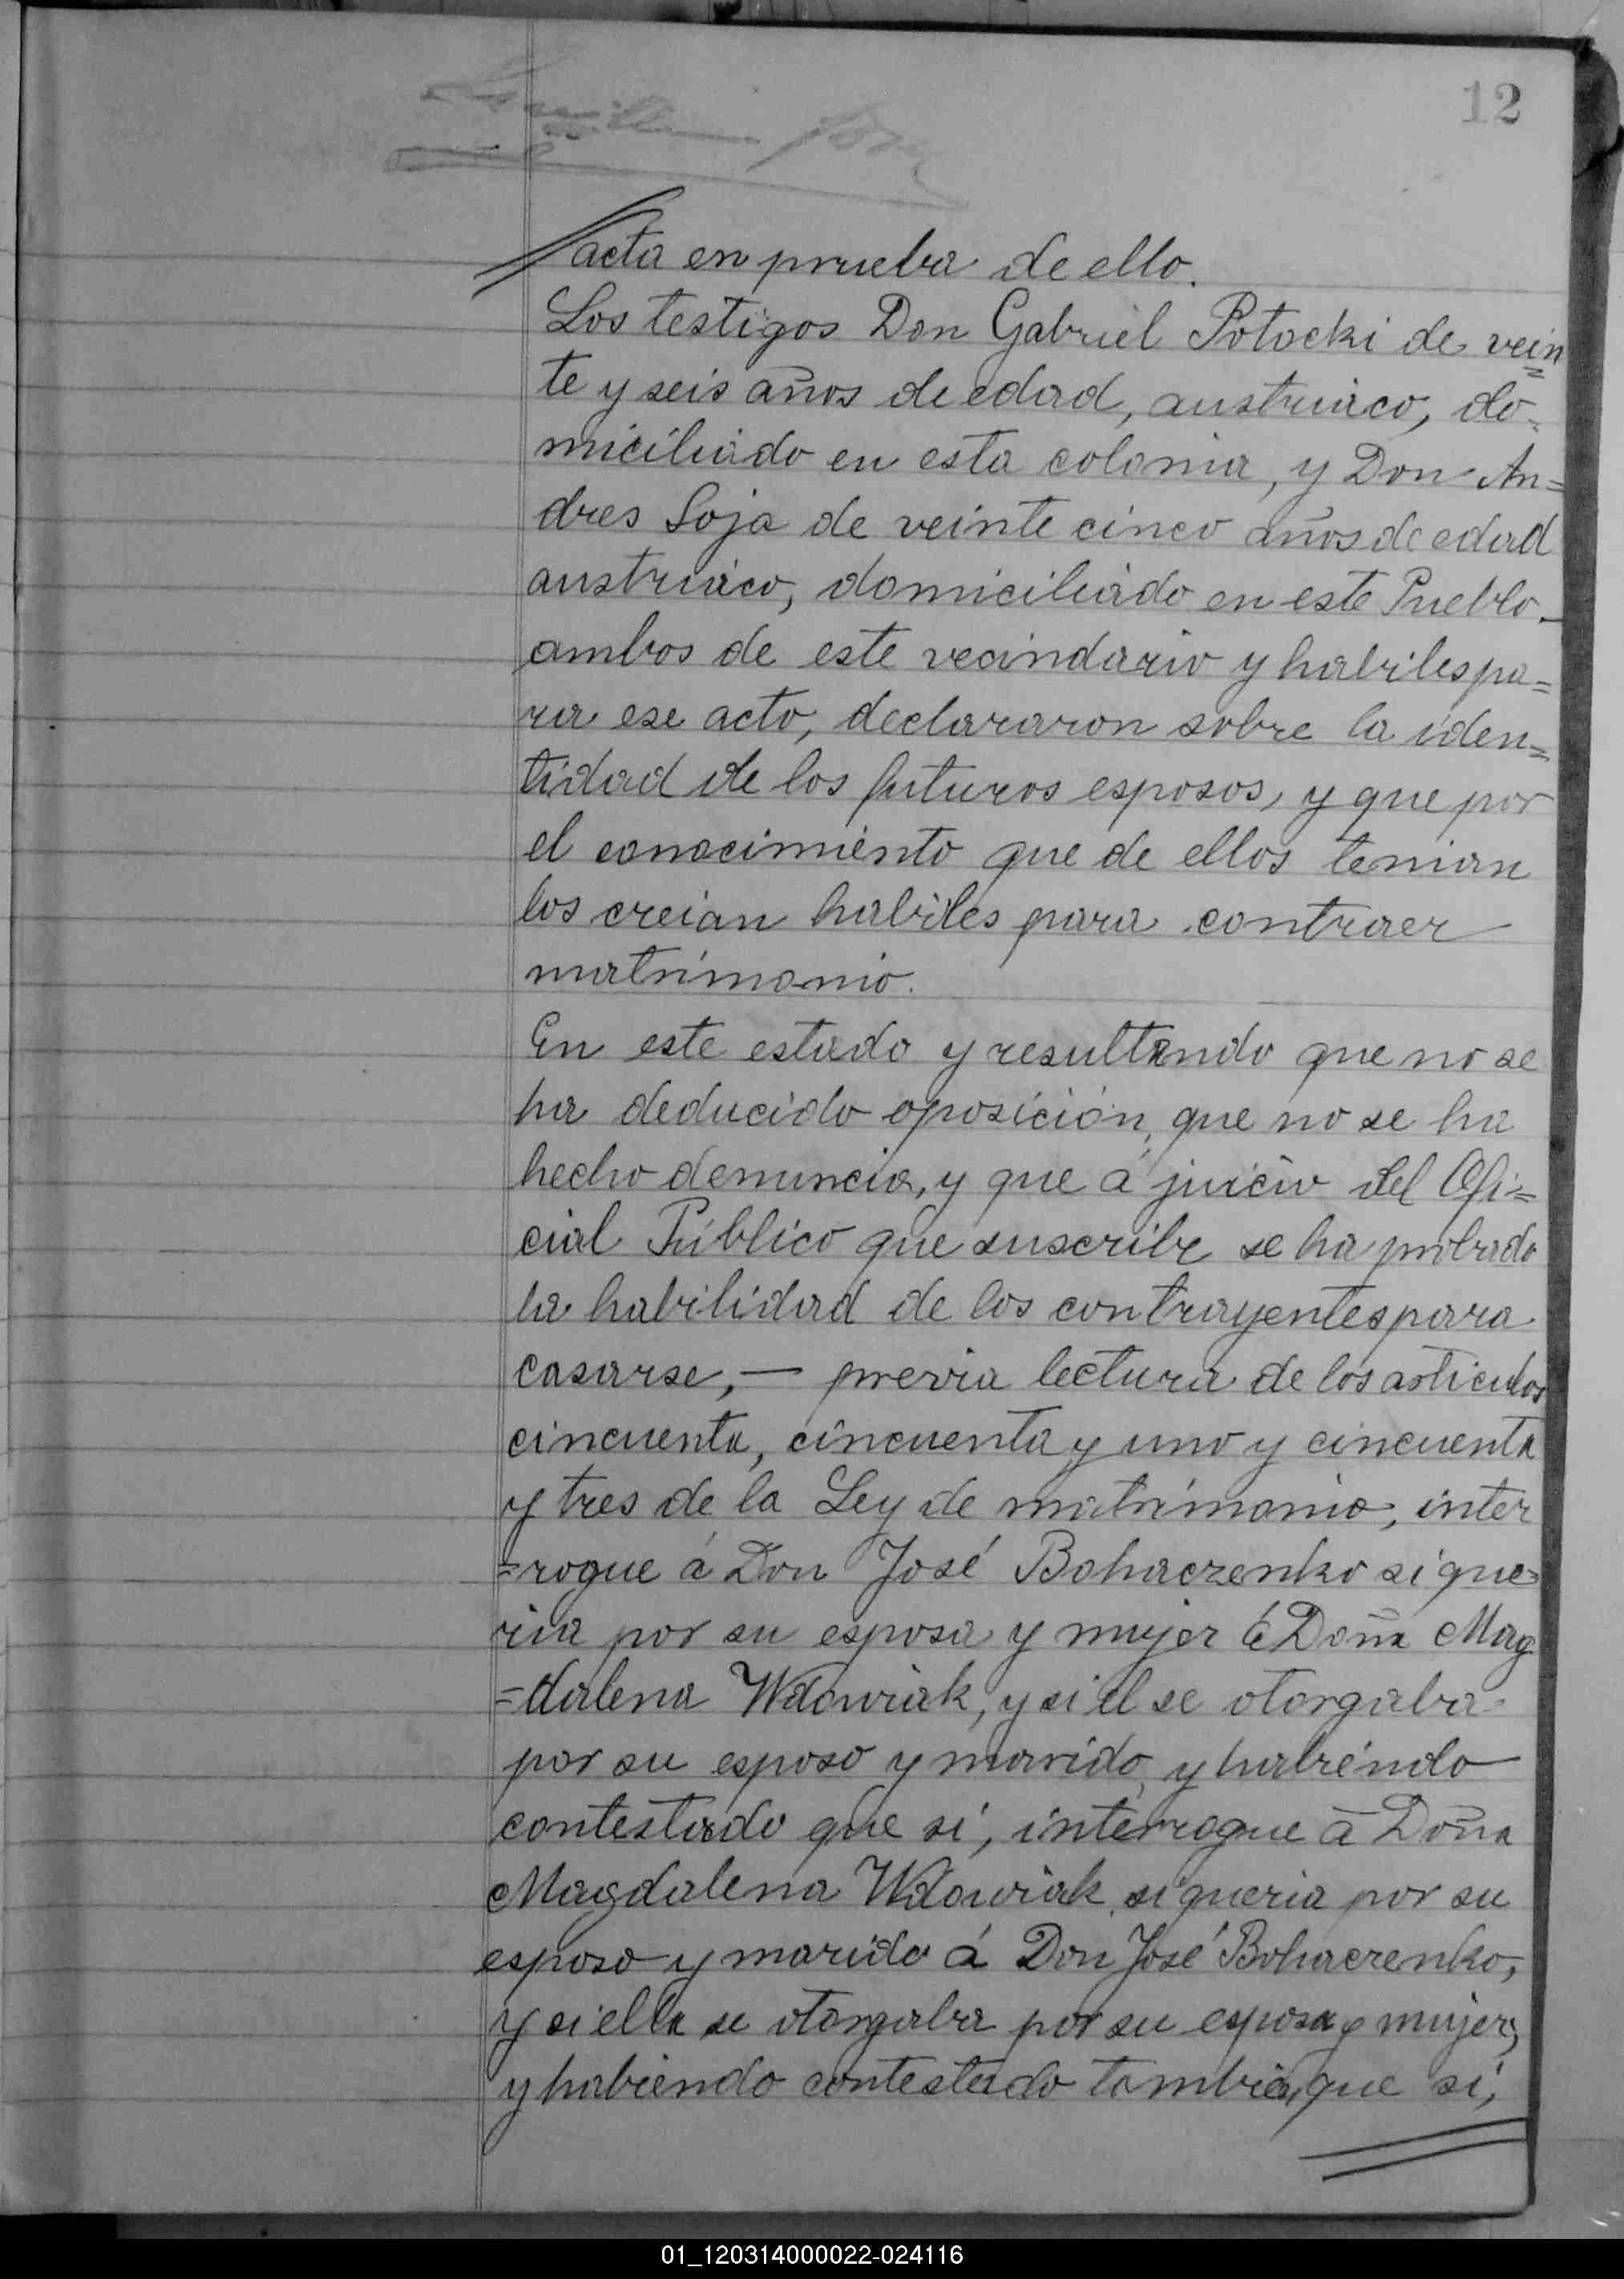 12
acta en prueba de ello.
Los testigos Don Gabriel Potocki de vein=
te y seis años de edad, austriáco, do=
miciliádo en esta colonia, y Don An=
dres Soja de veinte cinco años de edad
austriáco, domiciliádo en este Pueblo.
ambos de este vecindario y habiles pa=
ra ese acto, declararon sobre la iden=
tidad de los futuros esposos, y que por
el conocimiento que de ellos tenian
los creian habiles para contraer
matrimonio.
En este estado y resultando que no se
ha deducido oposición, que no se ha
hecho denuncia, y que á juicio del Ofi=
cial Público que suscribe se ha probado
la habilidad de los contrayentes para
casarse, — previa lectura de los articulos
cincuenta, cincuenta y uno y cincuenta
y tres de la Ley de matrimonio, inter
=rogue á Don José Bohaczenko si que=
ria por su esposa y mujer á Doña Mag
=dalena Wdowiak, y si el se otorgaba
por su esposo y marido, y habiendo
contestado que si, interrogue á Doña
Magdalena Wdowiak, si queria por su
esposo y marido á Don José Bohaczenko,
y si ella se otorgaba por su esposa y mujer,
y habiendo contestado tambien que si,
01_120314000022-024116